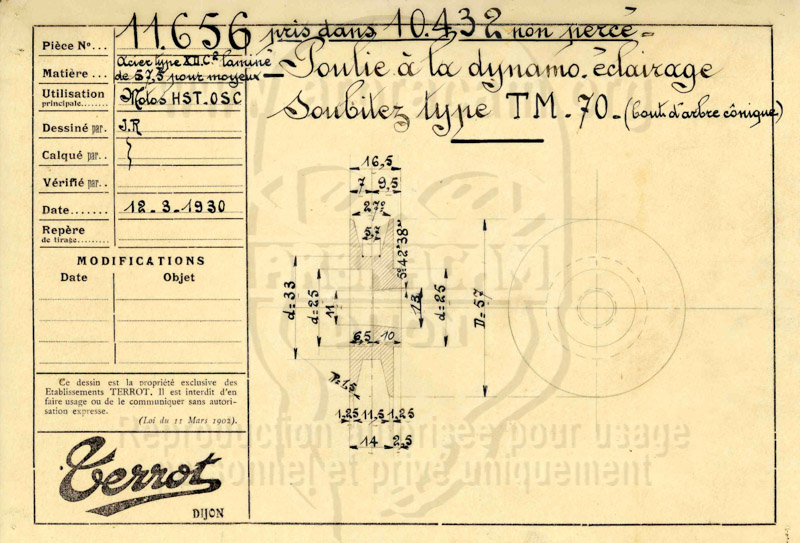 Pièce N°... 11.656 pris dans 10.432 non percé_
Matière... Acier type XII.C² laminé
de 57,5 pour moyeux
_Poulie à la dynamo-éclairage
Soubitez type TM-70_(bout d'arbre cônique)
Utilisation
principale........ Motos HST_OSC
Dessiné par. J.R
Calqué par..
Vérifié par..
Date....... 12_3_1930
Repère
de tirage........
MODIFICATIONS
Date Objet
16,5
7 9,5
27°
5,7
5°42'38"
d=33
d=25
11
13
d=25
D=57
6,5 10
R=1,5
1,25 11,5 1,25
14 2,5
Ce dessin est la propriété exclusive des
Etablissements TERROT. Il est interdit d'en
faire usage ou de le communiquer sans autori-
sation expresse.
(Loi du 11 Mars 1902).
Terrot
DIJON
Reproduction autorisée pour usage
personnel et privé uniquement